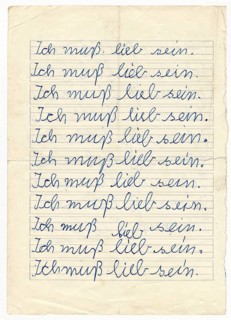 Ich muß lieb sein.
Ich muß lieb sein.
Ich muß lieb sein.
Ich muß lieb sein.
Ich muß lieb sein.
Ich muß lieb sein.
Ich muß lieb sein.
Ich muß lieb sein.
Ich muß lieb sein.
Ich muß lieb sein.
Ich muß lieb sein.